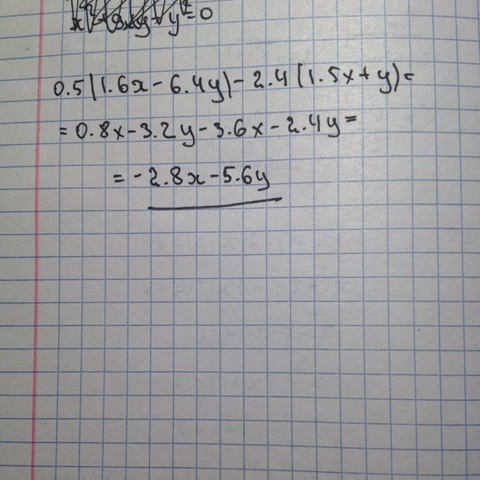 y² = 0
0.5(1.6x - 6.4y) - 2.4(1.5x + y) =
= 0.8x - 3.2y - 3.6x - 2.4y =
= -2.8x - 5.6y